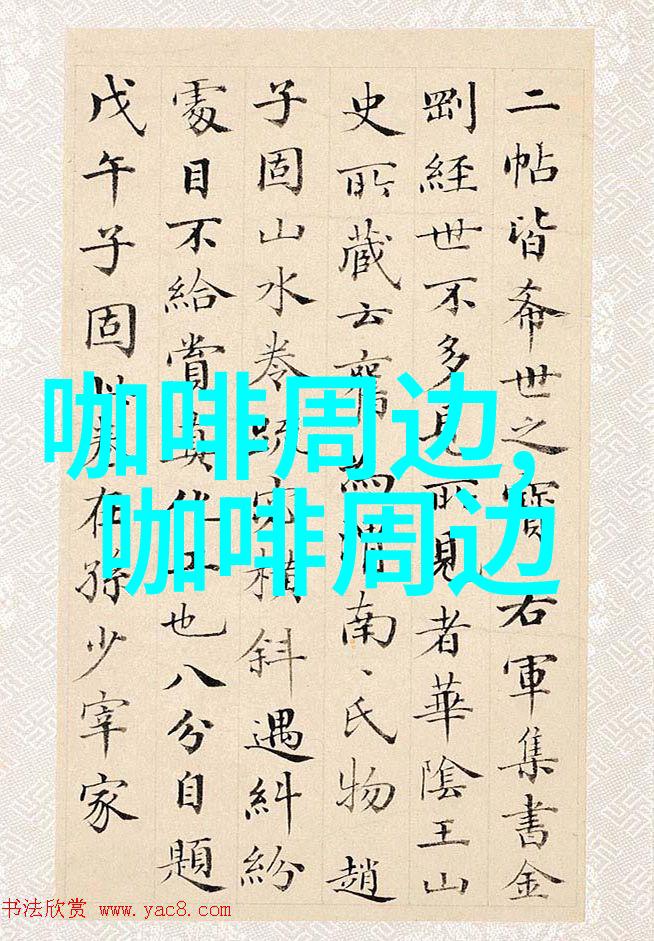 二帖皆希世之寶右軍集書金
剛經世不多見所見者華陰王山
史所藏云舊為渭南、氏物趙
子固山水卷疏密橫斜遇糾紛
處目不給賞真化工也八分自題
戊午子固在孫少宰家
咖啡周边,
咖啡周边
书法欣赏 www.yac8.com